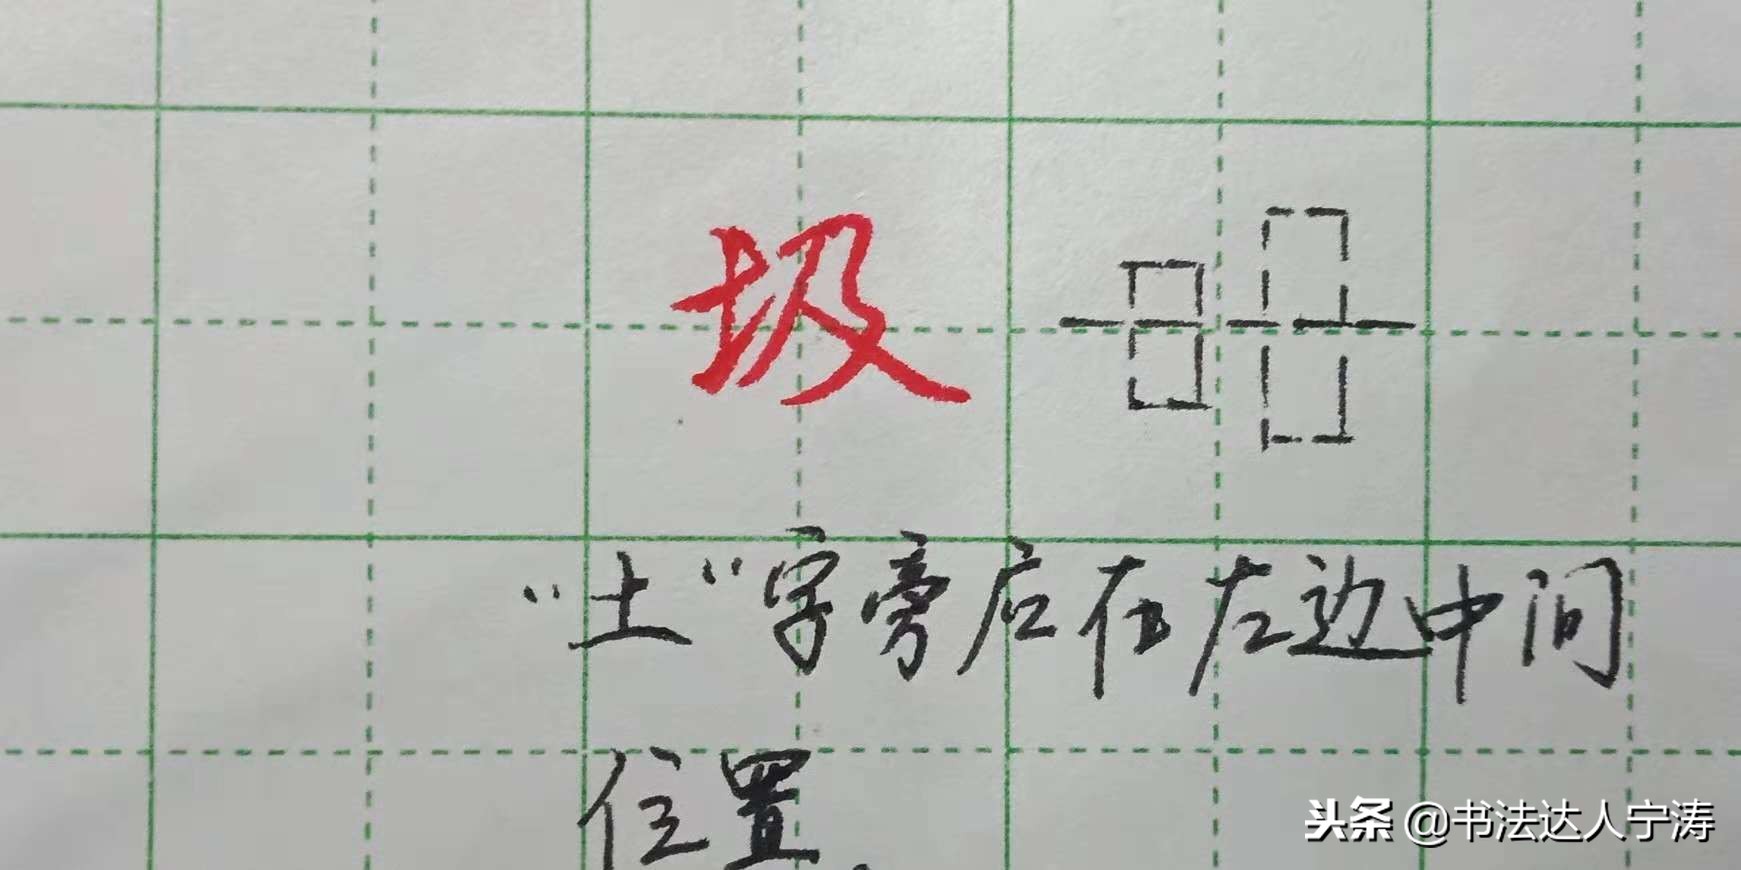 圾
“土”字旁后在左边中间
位置.
头条 @书法达人宁涛